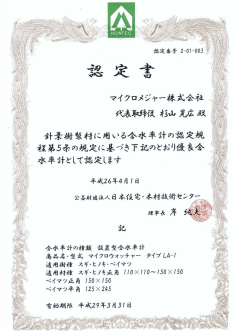 HOWTEC
認定番号 2-01-003
認定書
マイクロメジャー株式会社
代表取締役 杉山 寛広 殿
針葉樹製材に用いる含水率計の認定規
程第5条の規定に基づき下記のとおり優良含
水率計として認定します
平成26年4月1日
公益財団法人日本住宅・木材技術センター
理事長 岸 純夫
記
含水率計の種類 設置型含水率計
商品名・型式 マイクロウォッチャー タイプLA-1
適用樹種 スギ・ヒノキ・ベイマツ
適用材種 スギ・ヒノキ正角 110×110~150×150
ベイマツ正角 150×150
ベイマツ平角 125×245
有効期限 平成29年3月31日